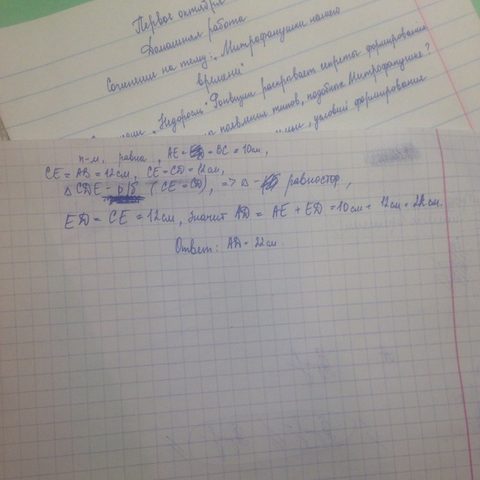 Первое октября
Домашняя работа
Сочинение на тему: "Митрофанушки нашего
времени"
"Недоросль" Фонвизин раскрывает секреты формирования
появления типов, подобных Митрофанушке?
условий формирования
п-м. равна , AE = BC = 10 см,
CE = AB = 12 см, CE = CD = 12 см,
△ CDE - р/б (CE = CD), => △ - равностор.,
ED = CE = 12 см, значит AD = AE + ED = 10 см + 12 см = 22 см.
Ответ: AD = 22 см.